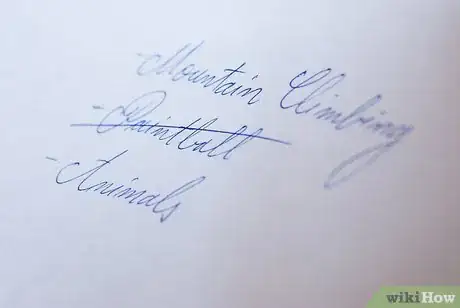 -Mountain Climbing
-Paintball
-Animals
wikiHow